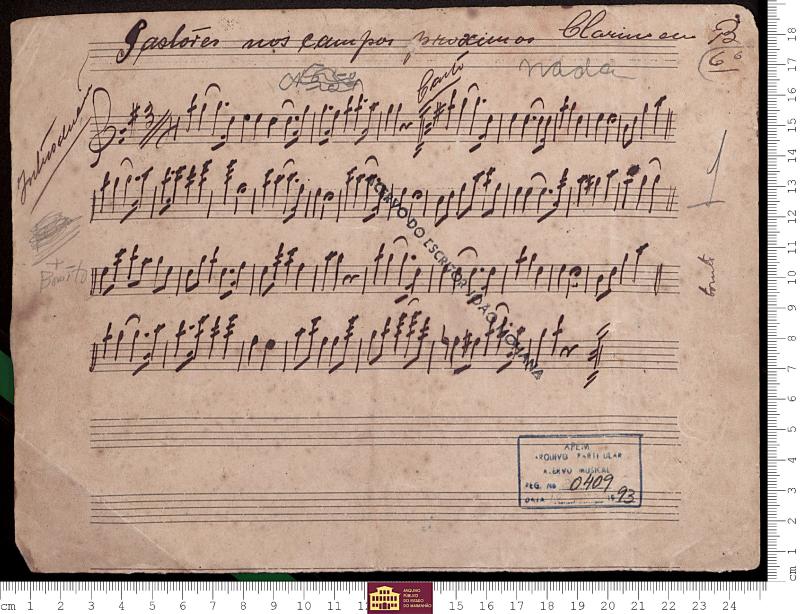 Pastôres nos campos proximos Clarino em B
6
nada
Canto
Introducção
3
+
Bonito
1
bonito
ACERVO DO ESCRITOR JOÃO MOHANA
APEM
ARQUIVO PARTICULAR
ACERVO MUSICAL
REG. No 0409
DATA 1993
cm 1 2 3 4 5 6 7 8 9 10 11 12 15 16 17 18 19 20 21 22 23 24
ARQUIVO
PÚBLICO
DO ESTADO
DO MARANHÃO
cm 1 2 3 4 5 6 7 8 9 10 11 12 13 14 15 16 17 18